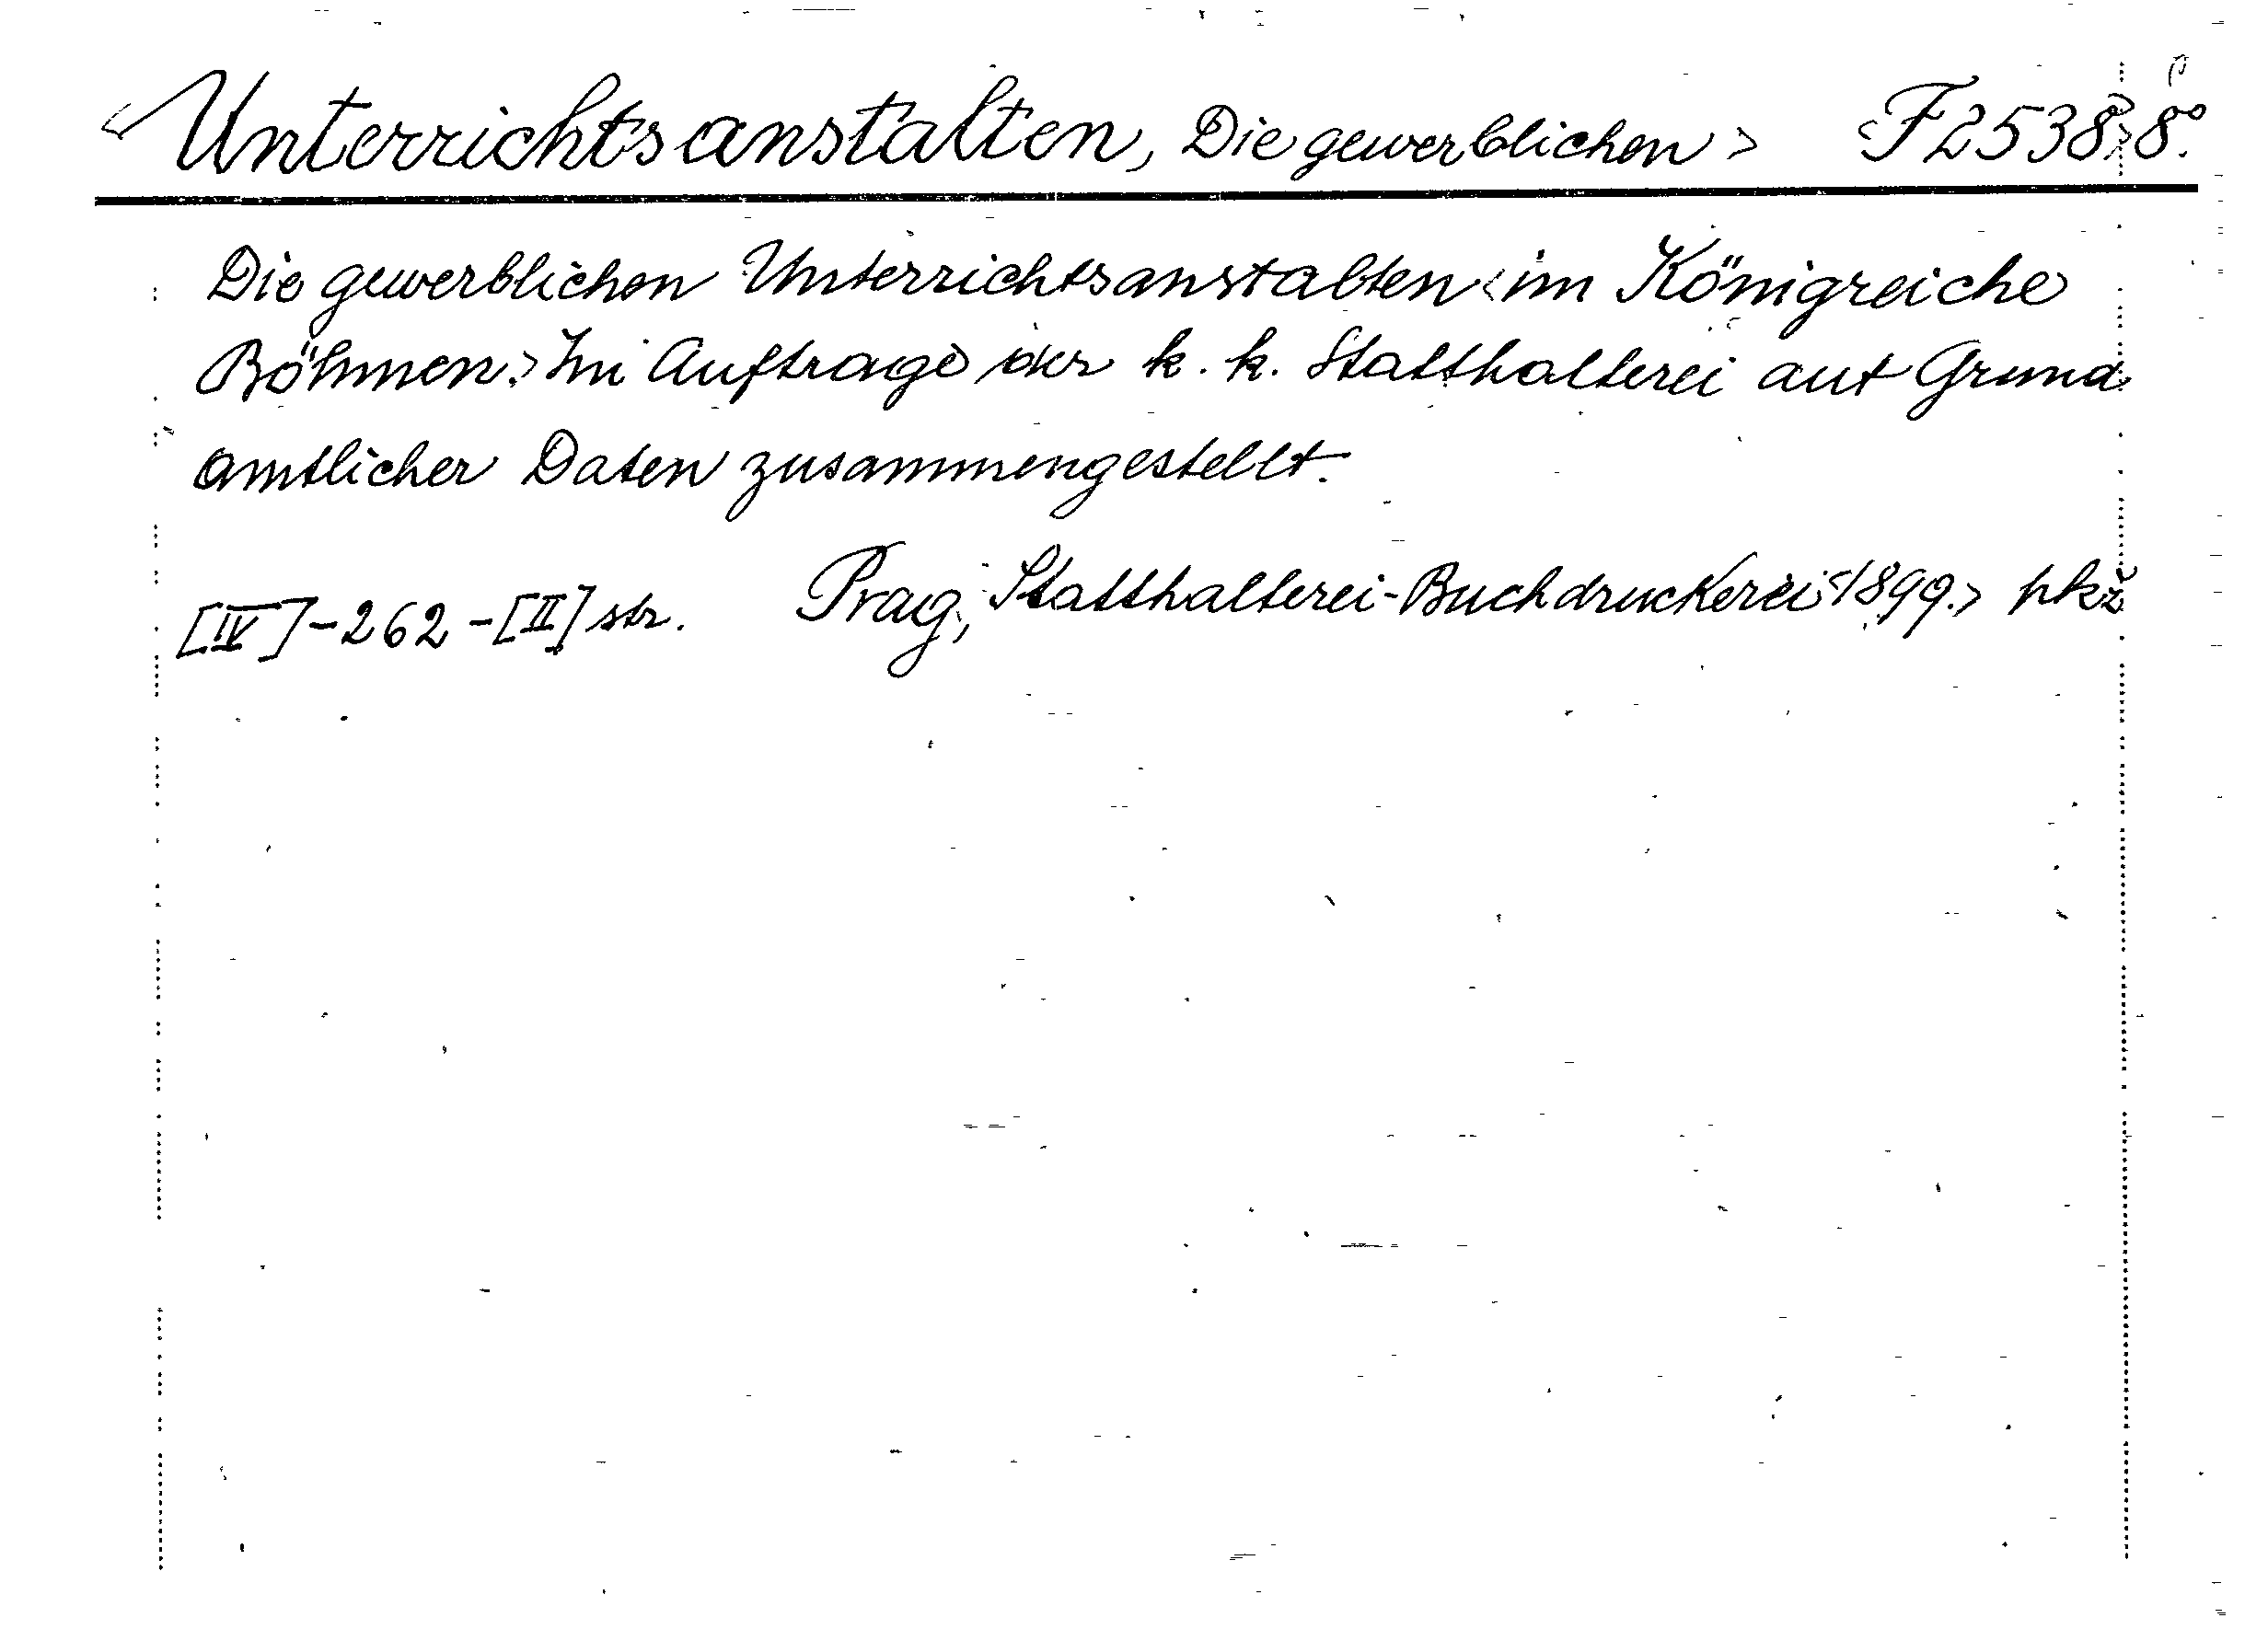 <Unterrichtsanstalten, Die gewerblichen> <F 2538> 8°.
Die gewerblichen Unterrichtsanstalten <im Königreiche
Böhmen.> Im Auftrage der k. k. Statthalterei auf Grund
amtlicher Daten zusammengestellt.
[IV]-262-[II] str. Prag, Statthalterei-Buchdruckerei <1899.> pkž